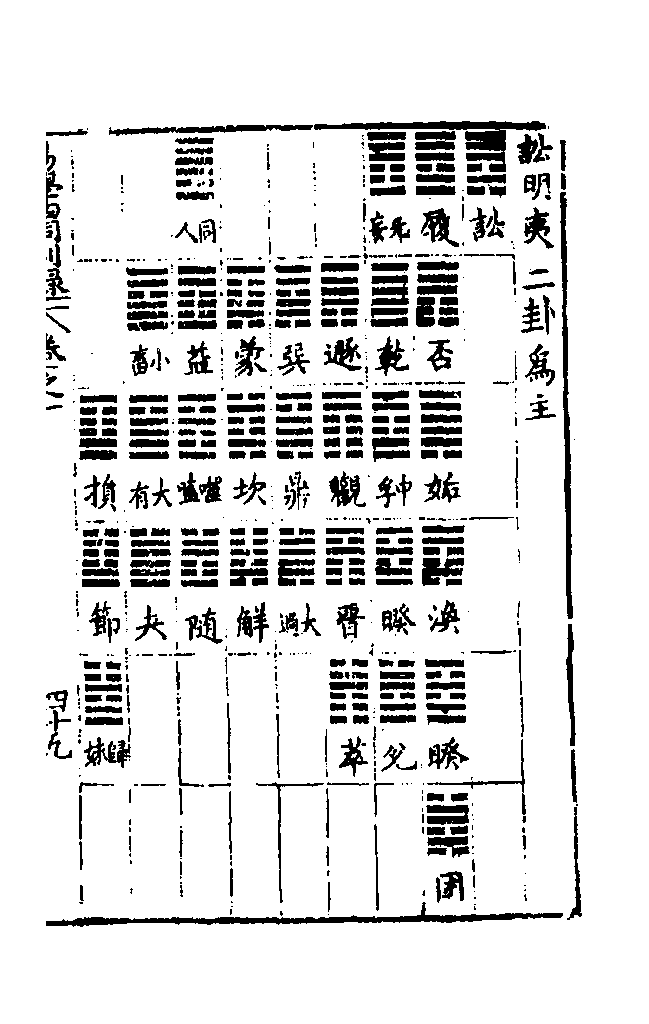 訟明夷二卦為主
訟 履 无妄 同人
否 乾 遯 巽 蒙 益 小畜
姤 中孚 觀 鼎 坎 噬嗑 大有 損
渙 睽 晉 大過 解 随 夬 節
睽 兌 萃 歸妹
困
卷之一
四十九